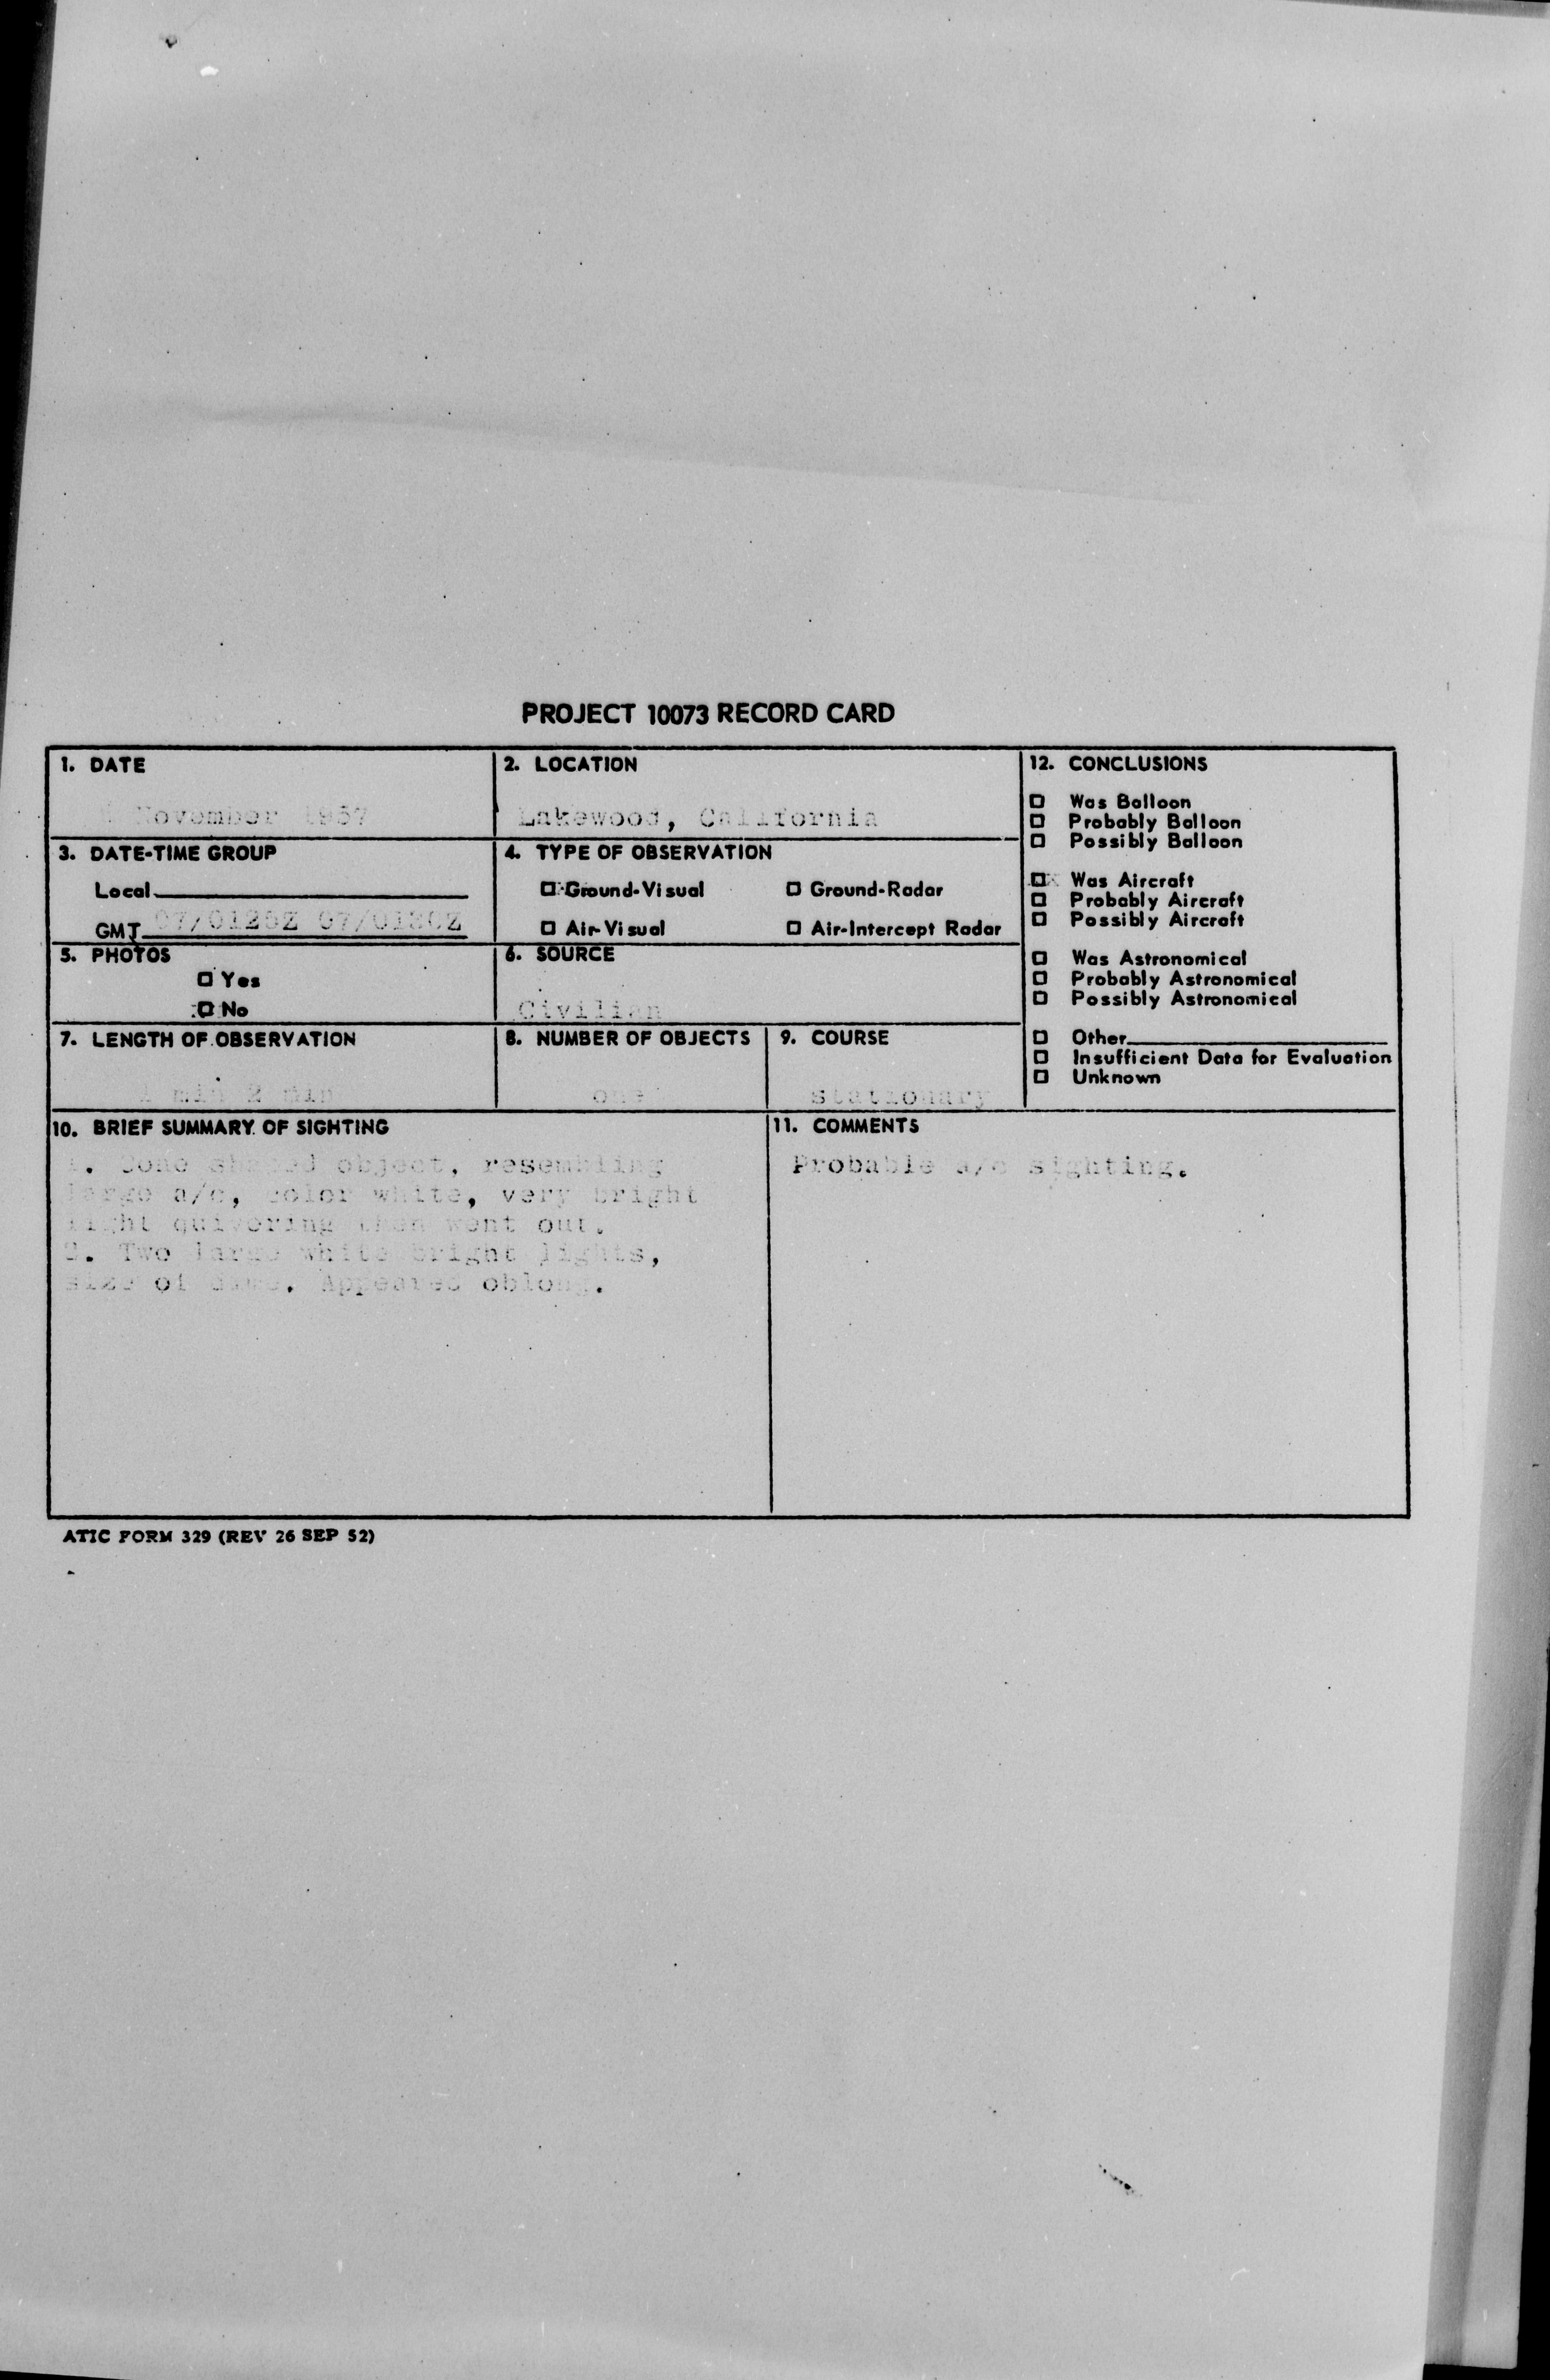 PROJECT 10073 RECORD CARD
1. DATE
November 1957
2. LOCATION
Lakewood, California
3. DATE-TIME GROUP
Local
GMT 07/0125Z 07/0130Z
4. TYPE OF OBSERVATION
Ground-Visual Ground-Radar
Air-Visual Air-Intercept Radar
5. PHOTOS
Yes
No
6. SOURCE
Civilian
7. LENGTH OF OBSERVATION
min 2 min
8. NUMBER OF OBJECTS
one
9. COURSE
stationary
12. CONCLUSIONS
Was Balloon
Probably Balloon
Possibly Balloon
Was Aircraft
Probably Aircraft
Possibly Aircraft
Was Astronomical
Probably Astronomical
Possibly Astronomical
Other
Insufficient Data for Evaluation
Unknown
10. BRIEF SUMMARY OF SIGHTING
1. Cone shaped object, resembling
large a/c, color white, very bright
light quivering then went out.
2. Two large white bright lights,
size of dime. Appeared oblong.
11. COMMENTS
Probable a/c sighting.
ATIC FORM 329 (REV 26 SEP 52)